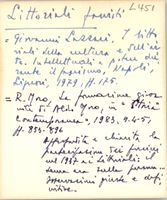 Littoriali fascisti L451
= Giovanni Lazzari, I litto
riali della cultura e dell'ar
te. Intellettuali e potere du
rante il fascismo, Napoli,
Liguori, 1979, p. 175
= R. Moro, La formazione giova
nile di Aldo Moro, in "Storia
Contemporanea", 1983, n. 4-5,
pp. 803-896
approfondita e chiarita la
partecipazione dei fucini
nel 1937 ai Littoriali: il
tema era sulla
osservazioni giuste e defi
nitive.